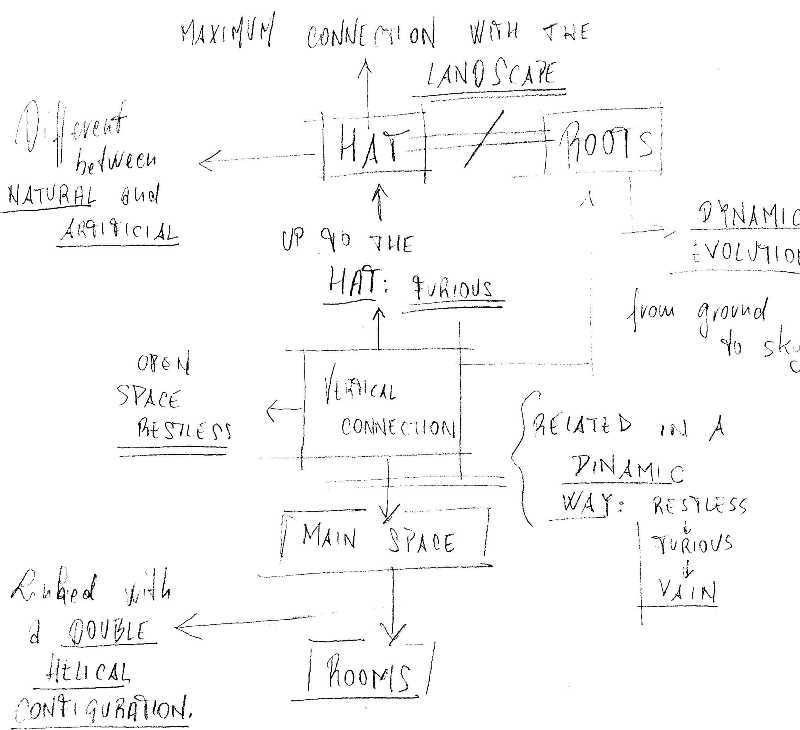 MAXIMUM CONNECTION WITH THE
LANDSCAPE
HAT
ROOTS
Different
between
NATURAL and
ARTIFICIAL
DYNAMIC
EVOLUTION
from ground
to sky
UP TO THE
HAT: FURIOUS
OPEN
SPACE
RESTLESS
VERTICAL
CONNECTION
RELATED IN A
DINAMIC
WAY: RESTLESS
FURIOUS
VAIN
MAIN SPACE
Linked with
a DOUBLE
HELICAL
CONFIGURATION.
ROOMS